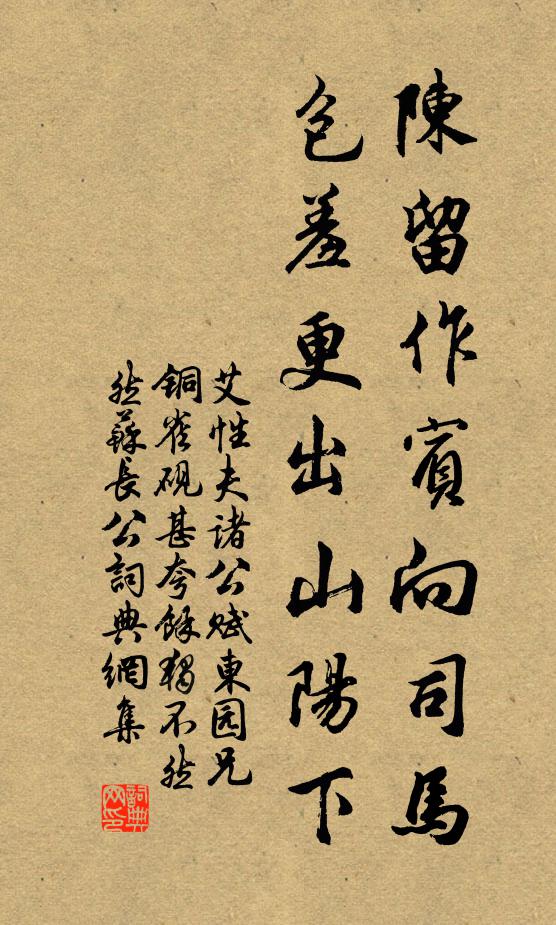 陳留作賓向司馬
包羞更出山陽下
艾性夫諸公賦東园兄
銅雀硯甚夸餘獨不然
然蘇長公詞典網集
詞典網印